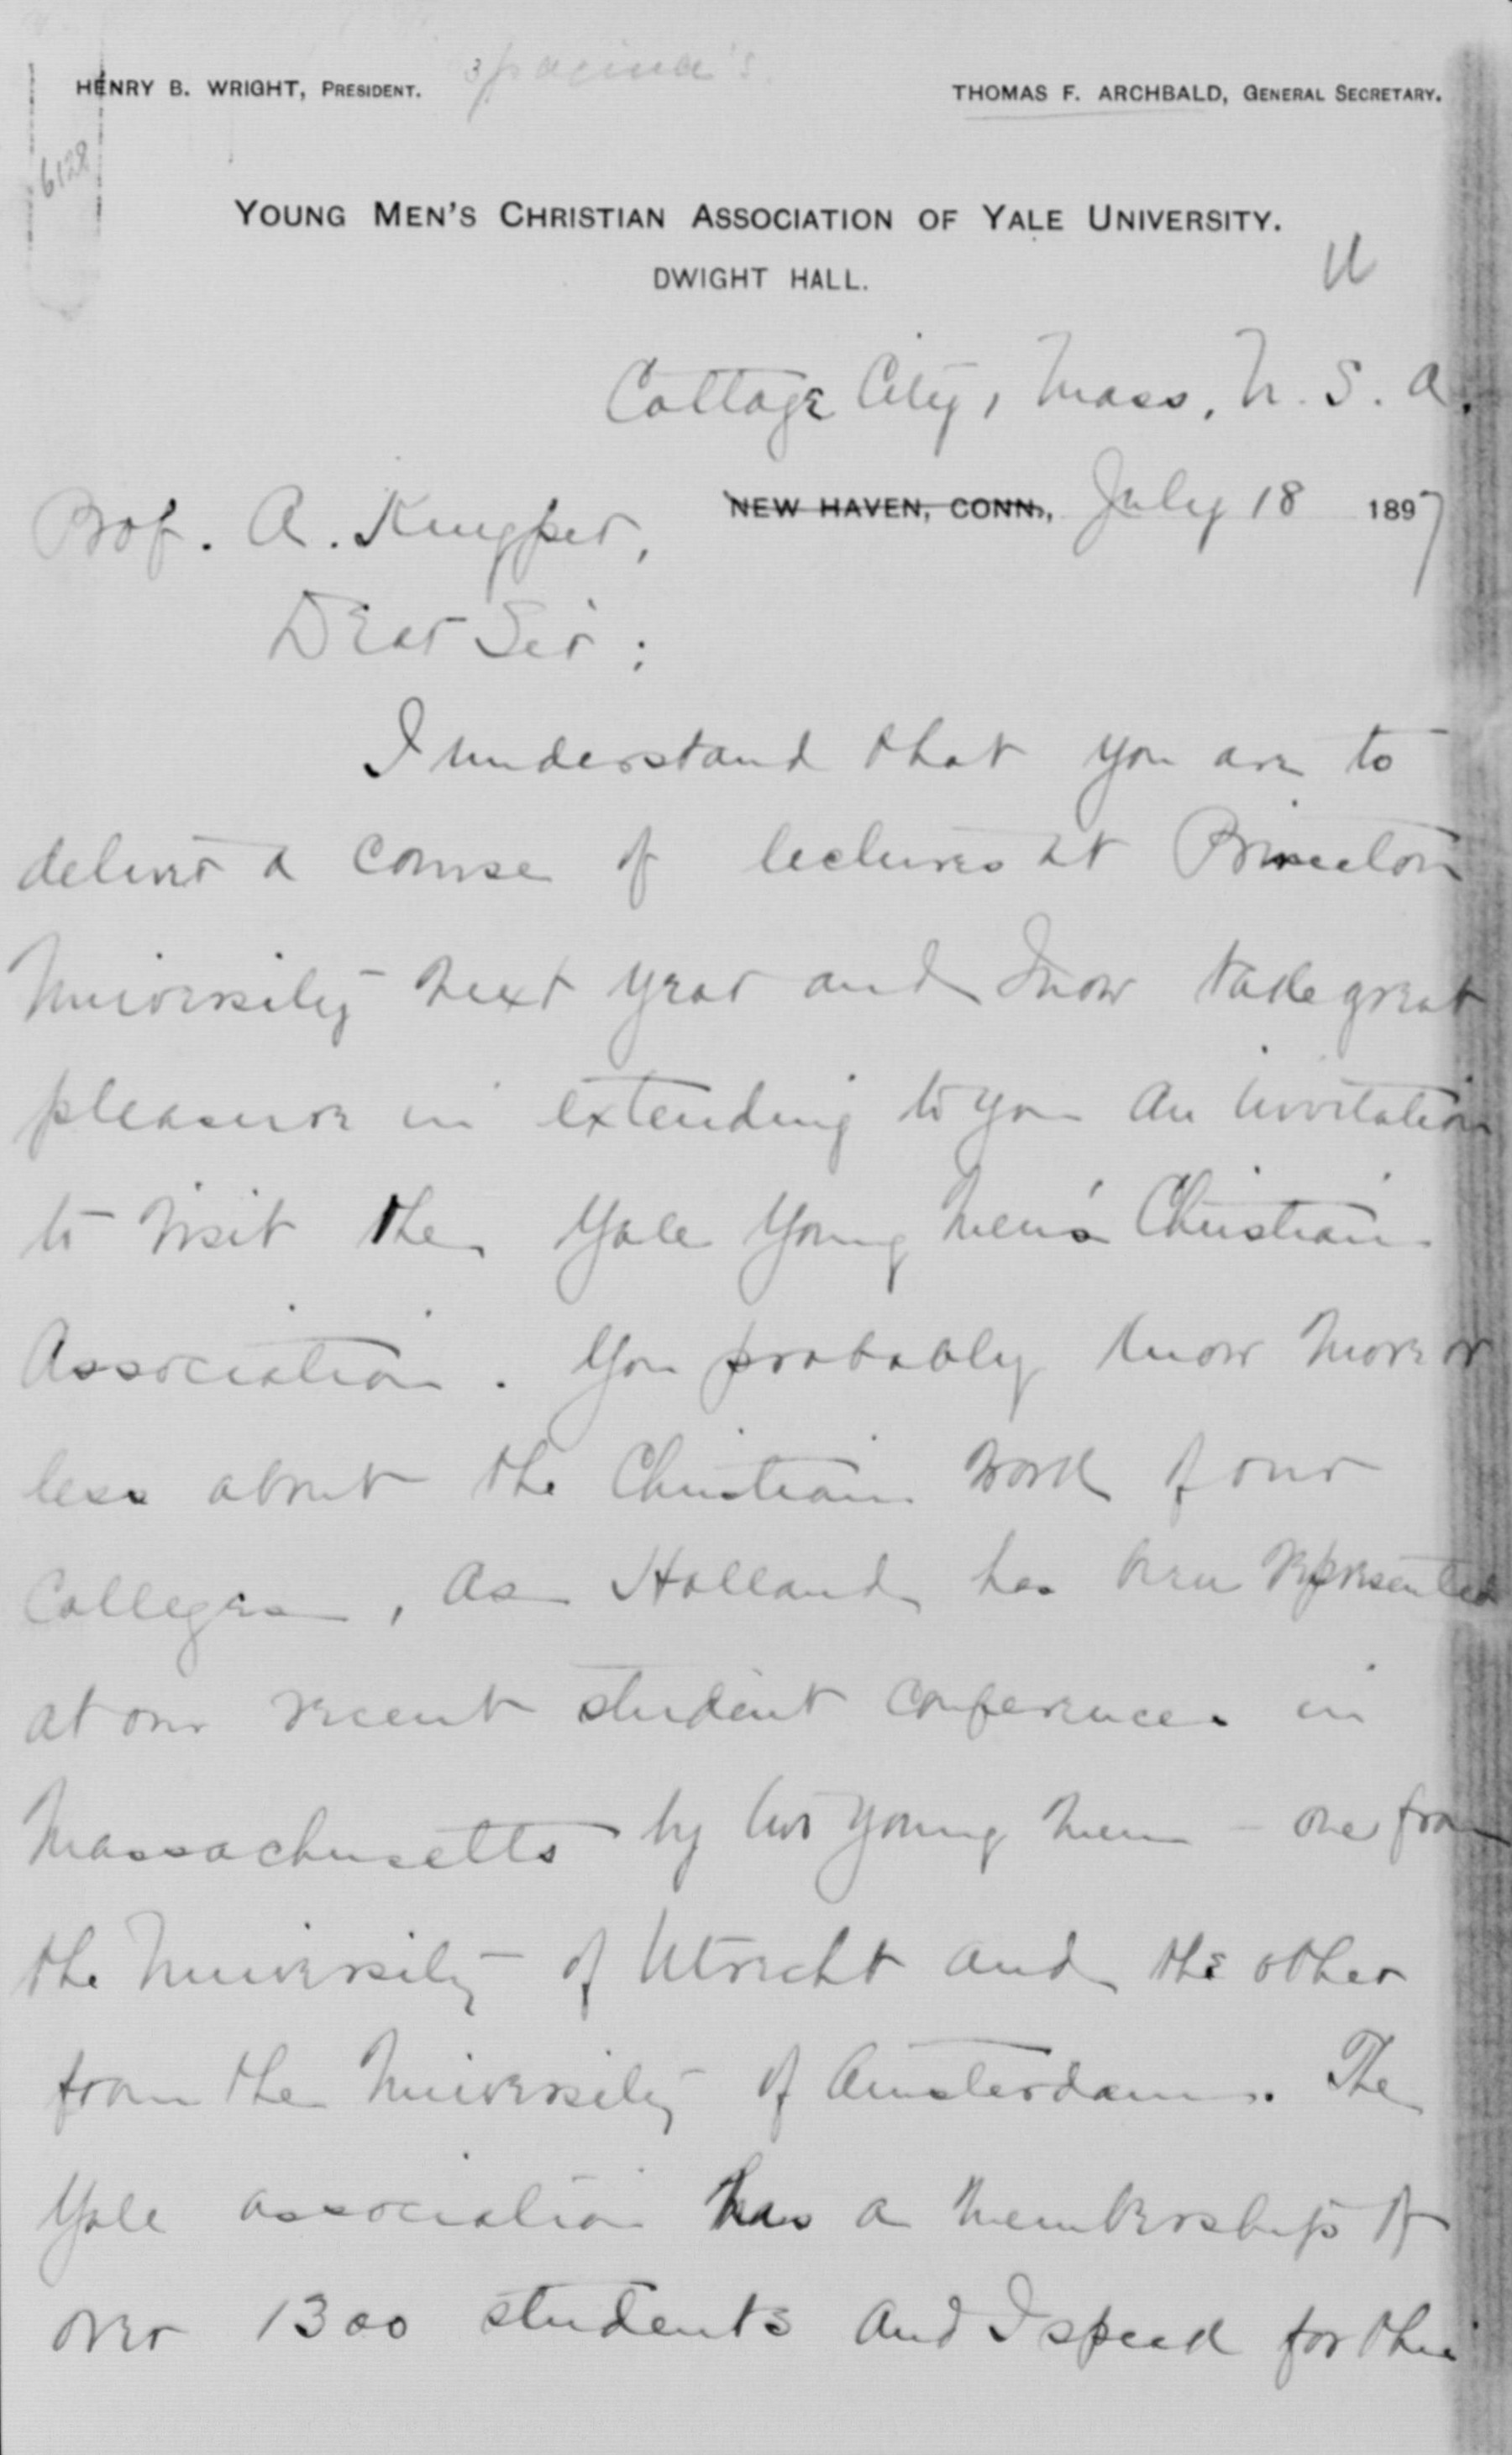 3 pagina's
HENRY B. WRIGHT, PRESIDENT.
THOMAS F. ARCHBALD, GENERAL SECRETARY.
6128
YOUNG MEN'S CHRISTIAN ASSOCIATION OF YALE UNIVERSITY.
DWIGHT HALL.
Cottage City, Mass, U. S. A.
NEW HAVEN, CONN., July 18 1897
Prof. A. Kuyper,
Dear Sir:
I understand that you are to
deliver a course of lectures at Princeton
University next year and I now take great
pleasure in extending to you an invitation
to visit the Yale Young Men's Christian
Association. You probably know more or
less about the Christian work of our
Colleges, as Holland has been represented
at our recent student conferences in
Massachusetts by two young men - one from
the University of Utrecht and the other
from the University of Amsterdam. The
Yale association has a membership of
over 1300 students and I speak for the